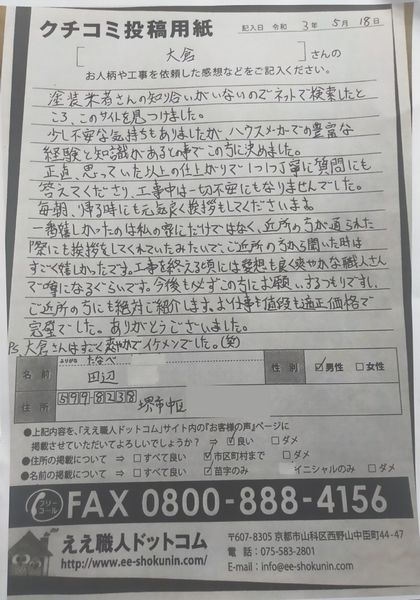 クチコミ投稿用紙
記入日 令和 3年 5月 18日
[ 大倉 ]さんの
お人柄や工事を依頼した感想などをご記入ください。
塗装業者さんの知り合いがいないのでネットで検索したと
ころ、このサイトを見つけました。
少し不安な気持ちもありましたが、ハウスメーカーでの豊富な
経験と知識があるとの事でこの方に決めました。
正直、思っていた以上の仕上がりで1つ1つ丁寧に質問にも
答えてくださり、工事中は一切不安にもなりませんでした。
毎朝、帰る時にも元気良く挨拶もしてくださいます。
一番嬉しかったのは私の家にだけではなく、近所の方が通られた
際にも挨拶をしてくれていたみたいで、ご近所の方から聞いた時は
すごく嬉しかったです。工事を終える頃には愛想も良く爽やかな職人さん
で噂になるぐらいです。今後も必ずこの方にお願いするつもりですし、
ご近所の方にも絶対ご紹介します。お仕事も値段も適正価格で
完璧でした。ありがとうございました。
P.S 大倉さんはすごく爽やかでイケメンでした。(笑)
ふりがな たなべ
名前 田辺
性別 ☑男性 □女性
住所 599-8238 堺市中区
●上記内容を、「ええ職人ドットコム」サイト内の『お客様の声』ページに
掲載させていただいてよろしいでしょうか? ⇒ ☑良い □ダメ
●住所の掲載について ⇒ □すべて良い ☑市区町村まで □ダメ
●名前の掲載について ⇒ □すべて良い ☑苗字のみ イニシャルのみ □ダメ
フリーコール FAX 0800-888-4156
ええ職人ドットコム
http://www.ee-shokunin.com/
〒607-8305 京都市山科区西野山中臣町44-12
電話：075-583-2801
E-mail：info@ee-shokunin.com